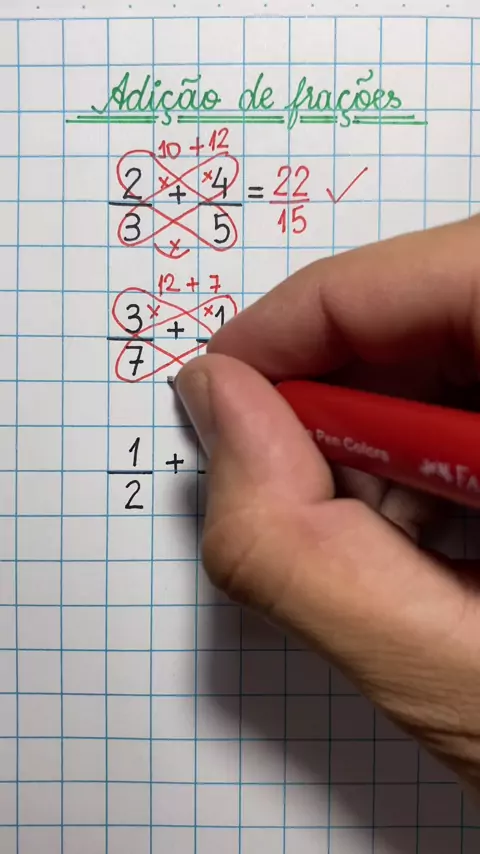 Adição de frações
10 + 12
2/3 + 4/5 = 22/15 ✓
12 + 7
3/7 + 1
1/2 +
Pen Colors